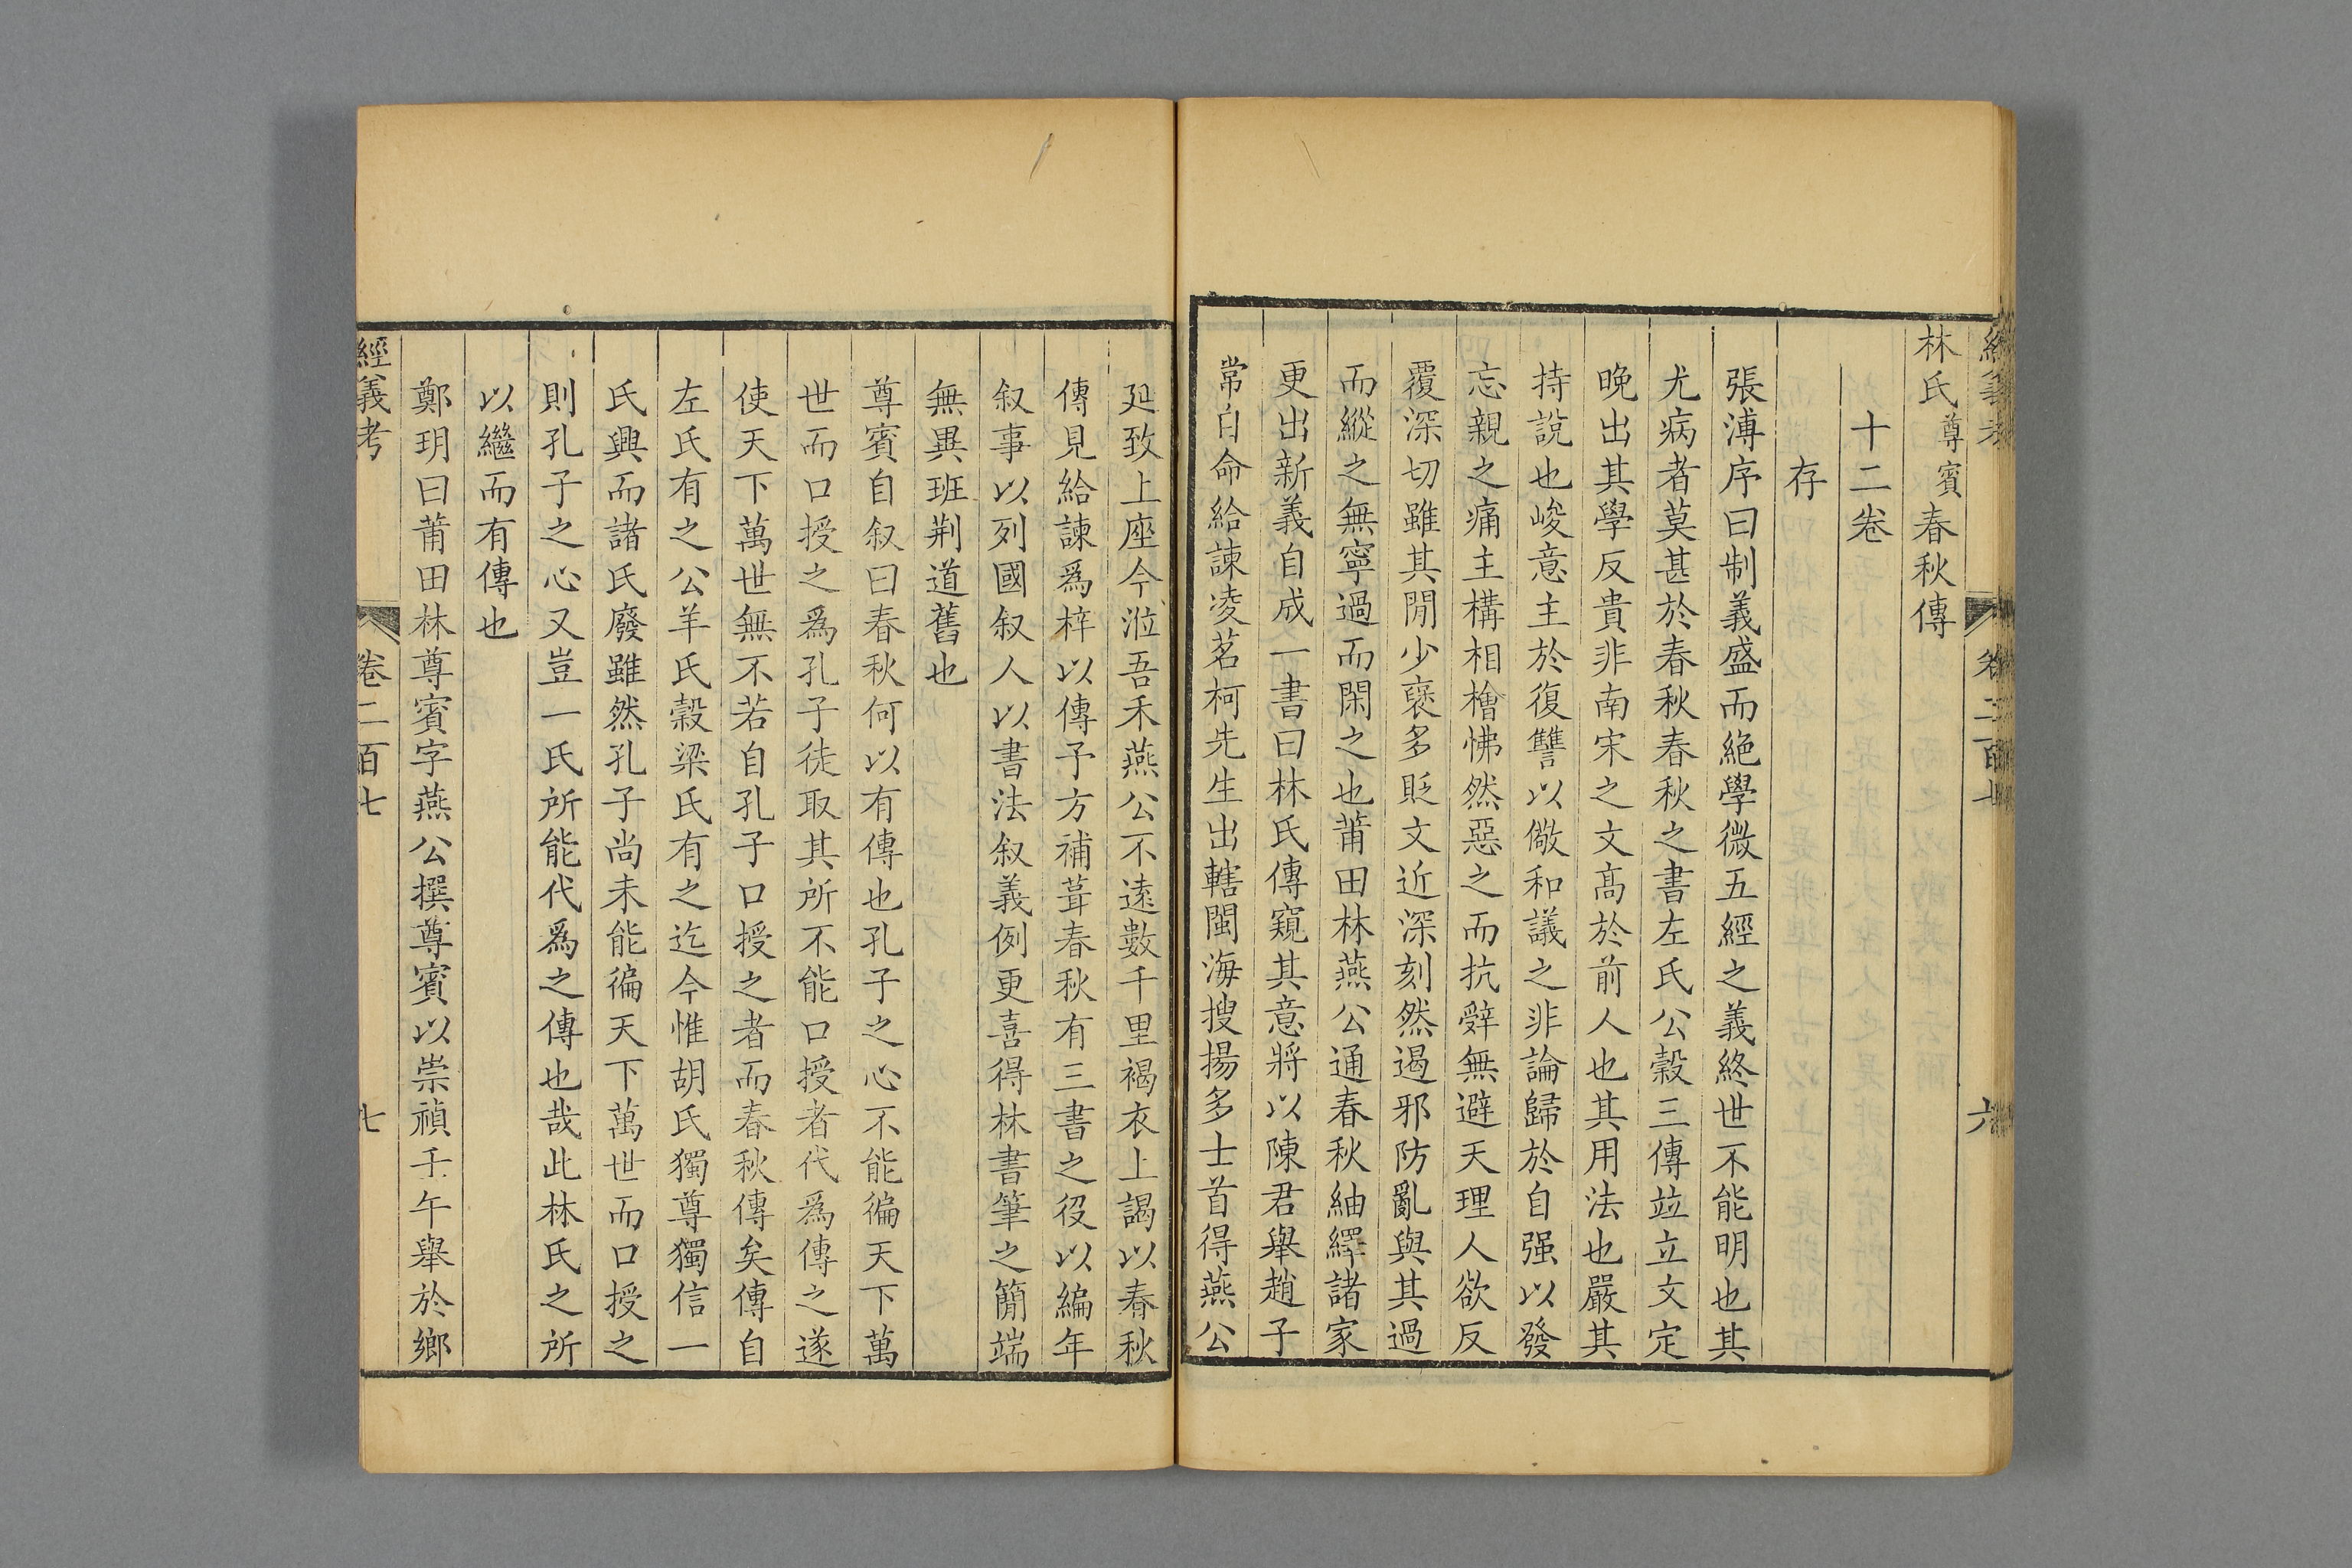 經義考 卷二百七 六
林氏尊賓春秋傳
十二卷
存
張溥序曰制義盛而絶學微五經之義終世不能明也其
尤病者莫甚於春秋春秋之書左氏公穀三傳竝立文定
晚出其學反貴非南宋之文高於前人也其用法也嚴其
持說也峻意主於復讐以儆和議之非論歸於自强以發
忘親之痛主構相檜怫然惡之而抗辭無避天理人欲反
覆深切雖其閒少襃多貶文近深刻然遏邪防亂與其過
而縱之無寧過而閑之也莆田林燕公通春秋紬繹諸家
更出新義自成一書曰林氏傳窺其意將以陳君舉趙子
常自命給諫凌茗柯先生出轄閩海搜揚多士首得燕公
延致上座今涖吾禾燕公不遠數千里褐衣上謁以春秋
傳見給諫爲梓以傳予方補葺春秋有三書之役以編年
叙事以列國叙人以書法叙義例更喜得林書筆之簡端
無異班荆道舊也
尊賓自叙曰春秋何以有傳也孔子之心不能徧天下萬
世而口授之爲孔子徒取其所不能口授者代爲傳之遂
使天下萬世無不若自孔子口授之者而春秋傳矣傳自
左氏有之公羊氏穀梁氏有之迄今惟胡氏獨尊獨信一
氏興而諸氏廢雖然孔子尚未能徧天下萬世而口授之
則孔子之心又豈一氏所能代爲之傳也哉此林氏之所
以繼而有傳也
鄭玥曰莆田林尊賓字燕公撰尊賓以崇禎壬午舉於鄉
經義考 卷二百七 七